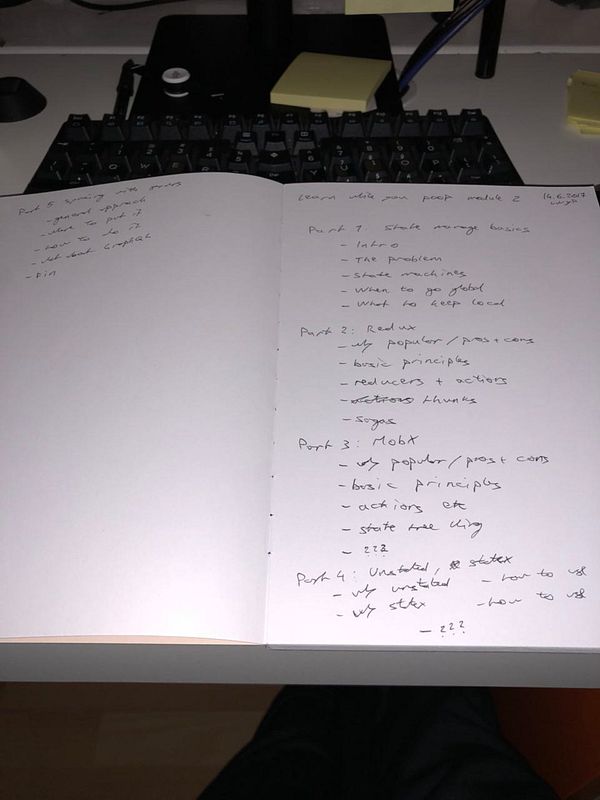 Learn while you poop module 2
14.6.2017
Part 1: State manage basics
- Intro
- The problem
- State machines
- When to go global
- What to keep local
Part 2: Redux
- why popular / pros + cons
- basic principles
- reducers + actions
- actions thunks
- sagas
Part 3: MobX
- why popular / pros + cons
- basic principles
- actions etc
- state tree thing
- ???
Part 4: Unstated, statex
- why unstated - how to use
- why statex - how to use
- ???
Part 5 Syncing with
- general approach
- where to put it
- how to do it
- what about GraphQL
- Fin